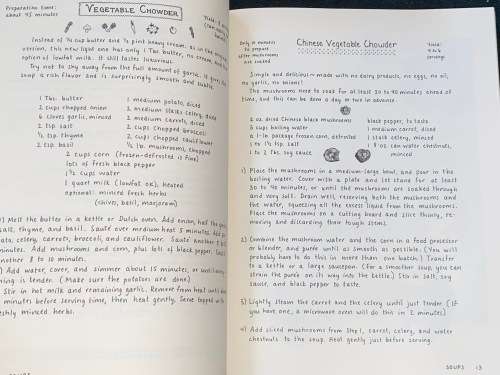 Preparation time:
about 45 minutes
VEGETABLE CHOWDER
Instead of ¼ cup butter and ½ pint heavy cream, as in the
version, this new light one has only 1 Tbs. butter, no cream, and
option of lowfat milk. It still tastes luxurious.
Try not to shy away from the full amount of garlic. It gives the
soup a rich flavor and is surprisingly smooth and subtle.
1 Tbs. butter
2 cups chopped onion
6 cloves garlic, minced
2 tsp. salt
1 medium potato, diced
2 medium stalks celery, diced
2 medium carrots, diced
2 cups chopped broccoli
2 cups chopped cauliflower
½ tsp. thyme
2 tsp. basil
mushrooms, chopped
2 cups corn (frozen-defrosted is fine)
lots of fresh black pepper
1½ cups water
1 quart milk (lowfat ok), heated
optional: minced fresh herbs
(chives, basil, marjoram)
Melt the butter in a kettle or Dutch oven. Add onion, half the
salt, thyme, and basil. Sauté over medium heat 5 minutes. Add
celery, carrots, broccoli, and cauliflower. Sauté another
minutes. Add mushrooms and corn, plus lots of black pepper. Sauté
another 8 to 10 minutes.
Add water, cover, and simmer about 15 minutes, or until
is tender. (Make sure the potatoes are done.)
Stir in hot milk and remaining garlic. Remove from heat until
minutes before serving time, then heat gently. Serve topped with
freshly minced herbs.
SOUPS
Only 15 minutes
to prepare
after mushrooms
are soaked
Chinese Vegetable Chowder
Yield:
4 to 6
servings
Simple and delicious – made with no dairy products, no eggs, no oil,
no garlic, no onions!
The mushrooms need to soak for at least 30 to 40 minutes ahead of
time, and this can be done a day or two in advance.
2 oz. dried Chinese black mushrooms
3 cups boiling water
a 1-lb. package frozen corn, defrosted
1 to 1½ tsp. salt
1 to 2 Tbs. soy sauce
black pepper, to taste
1 medium carrot, diced
1 stalk celery, minced
1 8 oz. can water chestnuts,
minced
1) Place the mushrooms in a medium-large bowl, and pour in the
boiling water. Cover with a plate and let stand for at least
30 to 40 minutes, or until the mushrooms are soaked through
and very soft. Drain, reserving both the mushrooms and
the water, squeezing all the excess liquid from the mushrooms.
Place the mushrooms on a cutting board and slice thinly, re-
moving and discarding their tough stems.
2) Combine the mushroom water and the corn in a food processor
or blender, and purée until as smooth as possible. (You will
probably have to do this in more than one batch.) Transfer
to a kettle or a large saucepan. (For a smoother soup, you can
strain the purée on its way into the kettle.) Stir in salt, soy
sauce, and black pepper to taste.
3) Lightly steam the carrot and the celery until just tender. (If
you have one, a microwave oven will do this in 2 minutes.)
4) Add sliced mushrooms from Step 1, carrot, celery, and water
chestnuts to the soup. Heat gently just before serving.
SOUPS 13